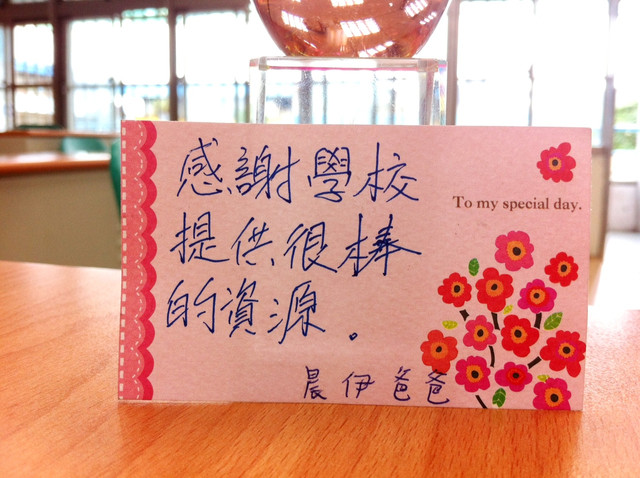 感謝學校
To my special day.
提供很棒
的資源。
晨伊爸爸